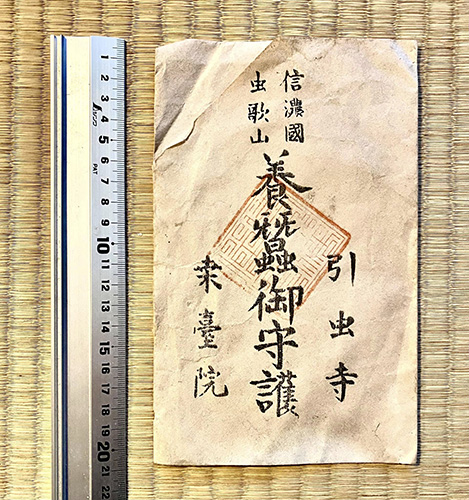 信濃國
虫歌山
引虫寺
養蠶御守護
桒臺院
1
2
3
4
5
シンワ
6
PAT
7
8
9
10
11
12
13
14
15
16
17
18
19
20
21
22